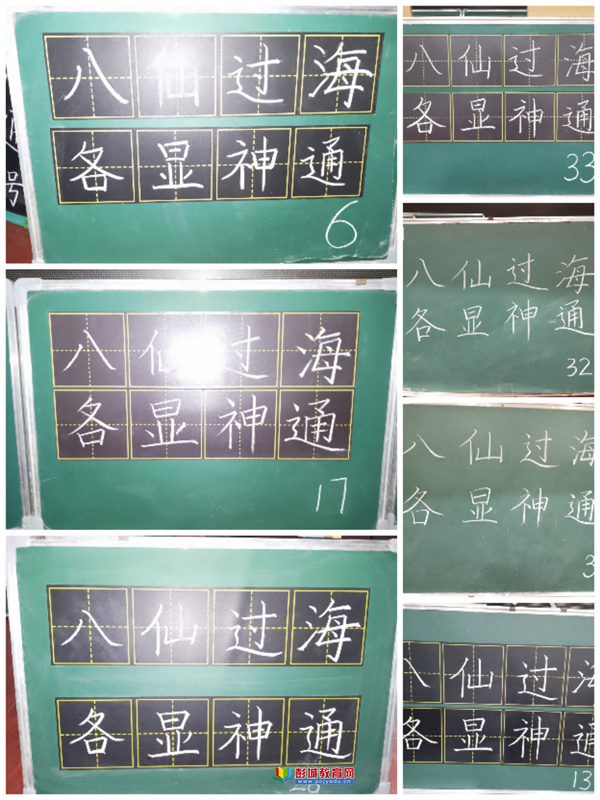 八仙过海
各显神通
6
八仙过海
各显神通
17
八仙过海
各显神通
彭城教育网
www.pcjyedu.cn
八仙过海
各显神通
33
八仙过海
各显神通
32
八仙过海
各显神通
3
八仙过海
各显神通
13